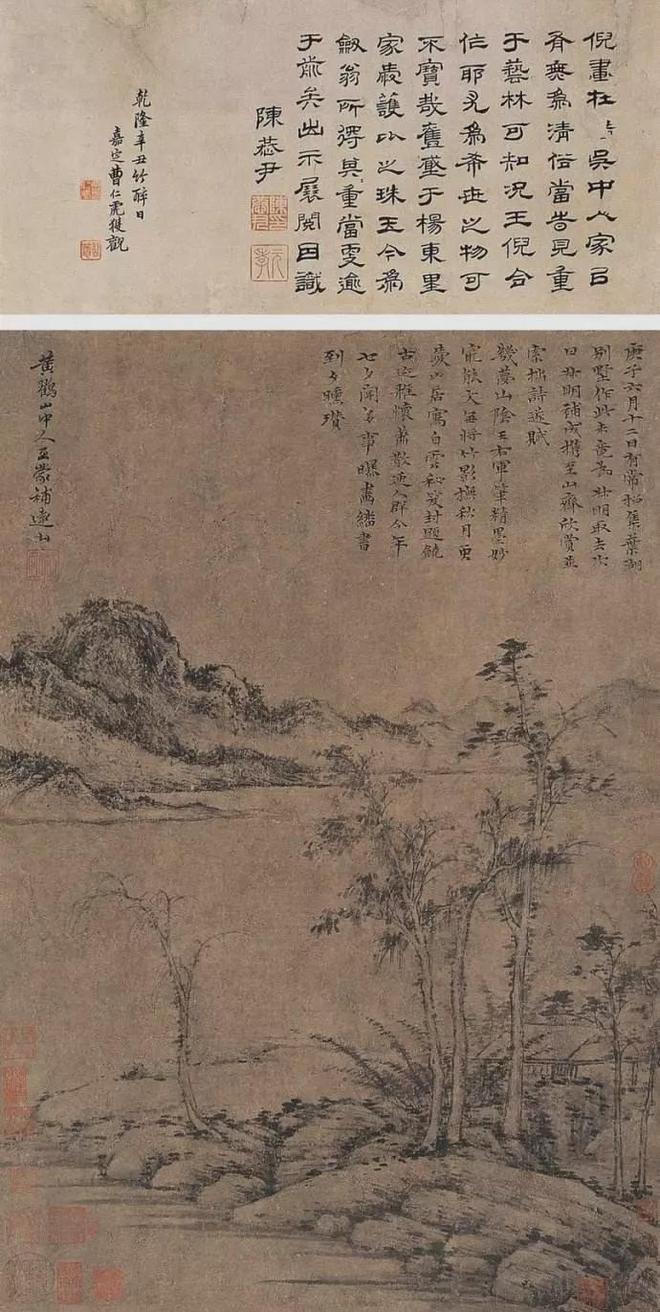 倪畫在吳中人家㠯
有無為清俗當昔見重
于藝林可知況王倪合
作耶尤為希世之物可
不寶哉舊藏于楊東里
家愛護比之珠玉今為
劔翁所得其重當更逾
于前矣出示展閱因識
陳恭尹
乾隆辛丑竹醉日
嘉定曹仁虎獲觀
庚子六月十二日有常招集葉湖
別墅作此未竟為叔明取去次
日叔明補成攜至山齋欣賞並
索拙詩遂賦
幾夢山陰王右軍筆精墨妙
冣能文每將竹影撫秋月更
愛山居寫白雲秘笈封題饒
古迹雅懷蕭散逸人群今年
七夕聞多事曝畫繙書
到夕曛瓚
黃鶴山中人王蒙補遠山